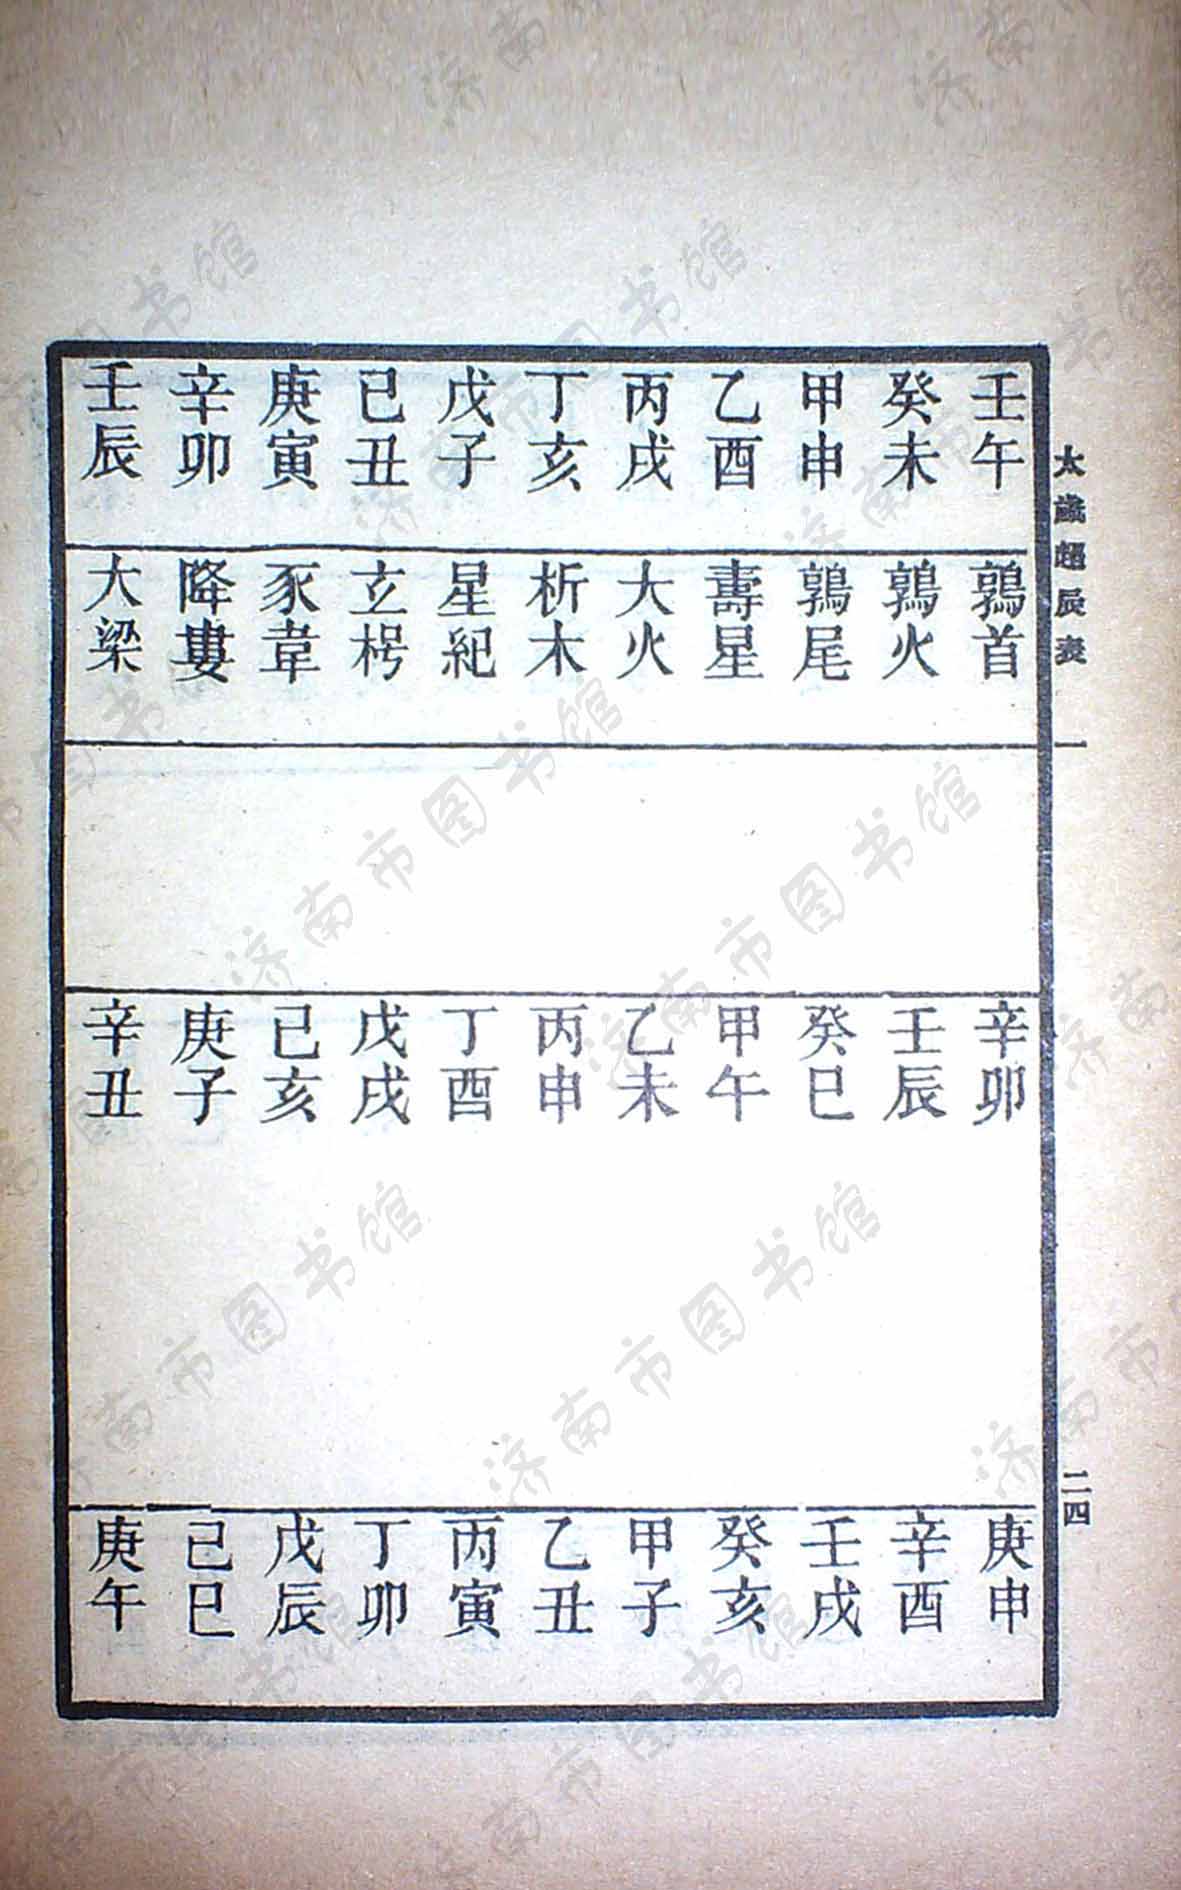 太歲超辰表
二四
壬午 鶉首 辛卯 庚申
癸未 鶉火 壬辰 辛酉
甲申 鶉尾 癸巳 壬戌
乙酉 壽星 甲午 癸亥
丙戌 大火 乙未 甲子
丁亥 析木 丙申 乙丑
戊子 星紀 丁酉 丙寅
己丑 玄枵 戊戌 丁卯
庚寅 豕韋 己亥 戊辰
辛卯 降婁 庚子 己巳
壬辰 大梁 辛丑 庚午
济南市图书馆